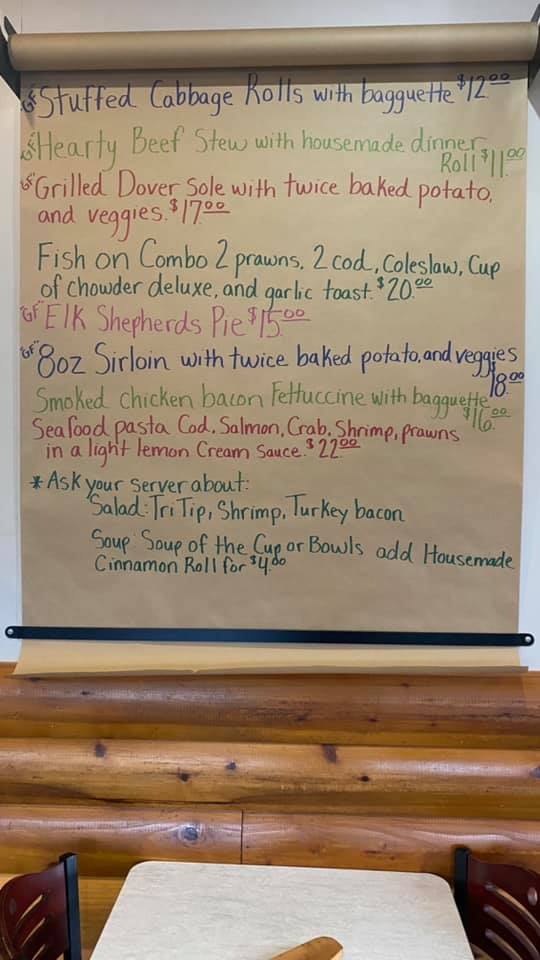 "GF" Stuffed Cabbage Rolls with bagguette $12.00
"GF" Hearty Beef Stew with housemade dinner
Roll $11.00
"GF" Grilled Dover Sole with twice baked potato,
and veggies. $17.00
Fish on Combo 2 prawns, 2 cod, Coleslaw, Cup
of chowder deluxe, and garlic toast. $20.00
"GF" Elk Shepherds Pie $15.00
"GF" 8oz Sirloin with twice baked potato, and veggies
18.00
Smoked chicken bacon Fettuccine with bagguette
$16.00
Seafood pasta Cod, Salmon, Crab, Shrimp, prawns
in a light lemon Cream sauce. $22.00
* Ask your server about:
Salad: Tri Tip, Shrimp, Turkey bacon
Soup: Soup of the Cup or Bowls add Housemade
Cinnamon Roll for $4.00